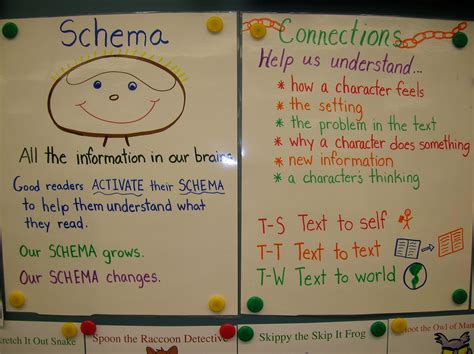 Schema
All the information in our brains
Good readers ACTIVATE their SCHEMA
to help them understand what
they read.
Our SCHEMA grows.
Our SCHEMA changes.
Connections
Help us understand...
* how a character feels
* the setting
* the problem in the text
* why a character does something
* new information
* a character's thinking
T-S Text to self
T-T Text to text
T-W Text to world
It Out Snake
Spoon the Raccoon Detective
Skippy the Skip It Frog
the Owl of